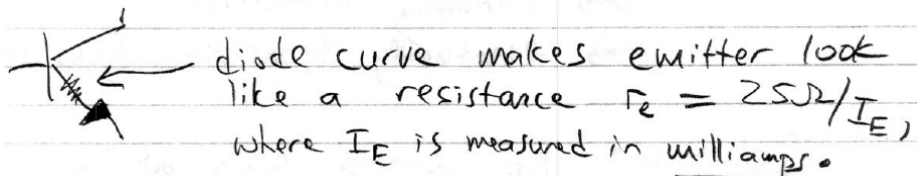 diode curve makes emitter look
like a resistance re = 25Ω/IE,
where IE is measured in milliamps.